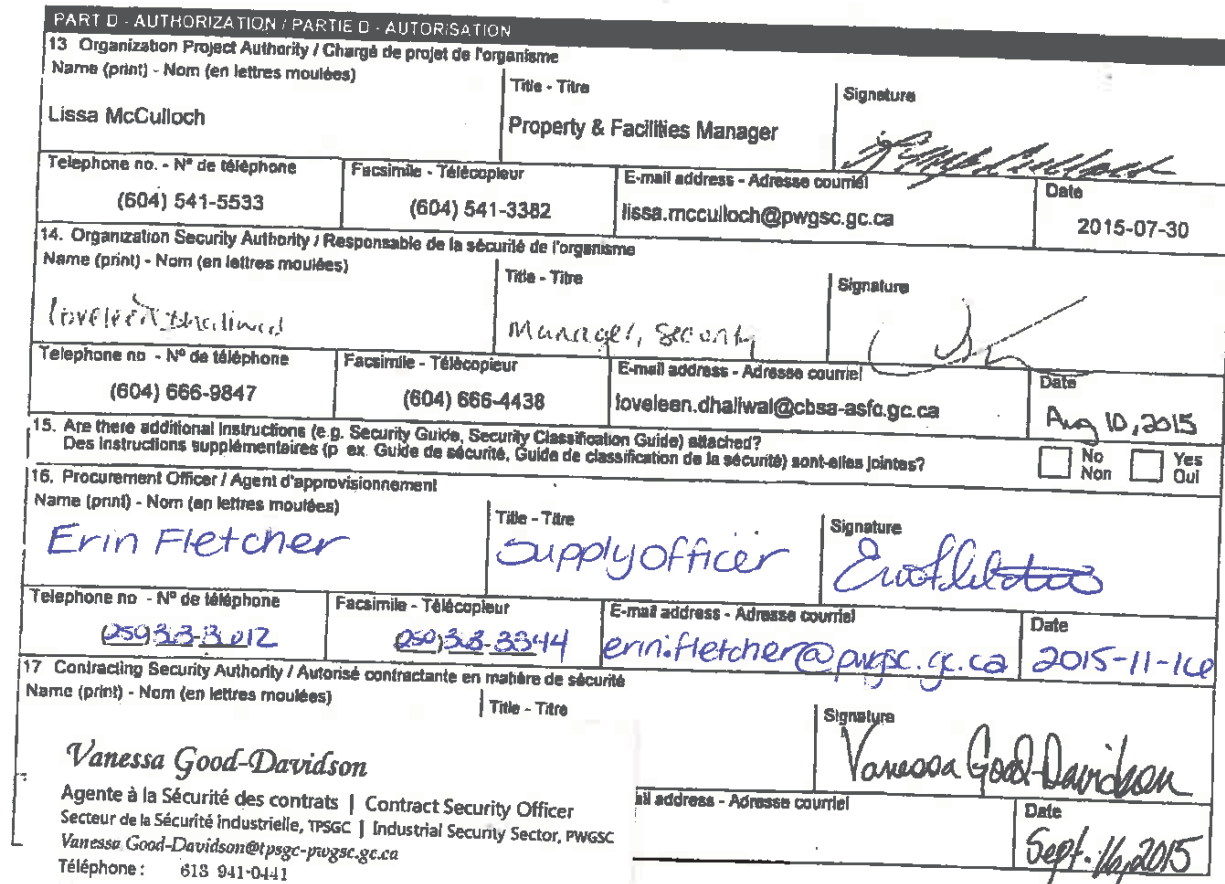 PART D - AUTHORIZATION / PARTIE D - AUTORISATION
13 Organization Project Authority / Chargé de projet de l'organisme
Name (print) - Nom (en lettres moulées)
Title - Titre
Signature
Lissa McCulloch
Property & Facilities Manager
Telephone no. - N° de téléphone
Facsimile - Télécopieur
E-mail address - Adresse courriel
Date
(604) 541-5533
(604) 541-3382
lissa.mcculloch@pwgsc.gc.ca
2015-07-30
14. Organization Security Authority / Responsable de la sécurité de l'organisme
Name (print) - Nom (en lettres moulées)
Title - Titre
Signature
Loveleen Dhaliwal
Manager, Security
Telephone no - N° de téléphone
Facsimile - Télécopieur
E-mail address - Adresse courriel
Date
(604) 666-9847
(604) 666-4438
loveleen.dhaliwal@cbsa-asfc.gc.ca
Aug 10, 2015
15. Are there additional Instructions (e.g. Security Guide, Security Classification Guide) attached?
Des Instructions supplémentaires (p ex. Guide de sécurité, Guide de classification de la sécurité) sont-elles jointes?
No
Non
Yes
Oui
16. Procurement Officer / Agent d'approvisionnement
Name (print) - Nom (en lettres moulées)
Title - Titre
Signature
Erin Fletcher
Supply Officer
Telephone no - N° de téléphone
Facsimile - Télécopieur
E-mail address - Adresse courriel
Date
erin.fletcher@pwgsc.gc.ca
2015-11-16
17 Contracting Security Authority / Autorisé contractante en matière de sécurité
Name (print) - Nom (en lettres moulées)
Title - Titre
Signature
Vanessa Good-Davidson
Vanessa Good-Davidson
Agente à la Sécurité des contrats | Contract Security Officer
Secteur de la Sécurité industrielle, TPSGC | Industrial Security Sector, PWGSC
Vanessa.Good-Davidson@tpsgc-pwgsc.gc.ca
Téléphone : 613 941-0441
ail address - Adresse courriel
Date
Sept. 16, 2015